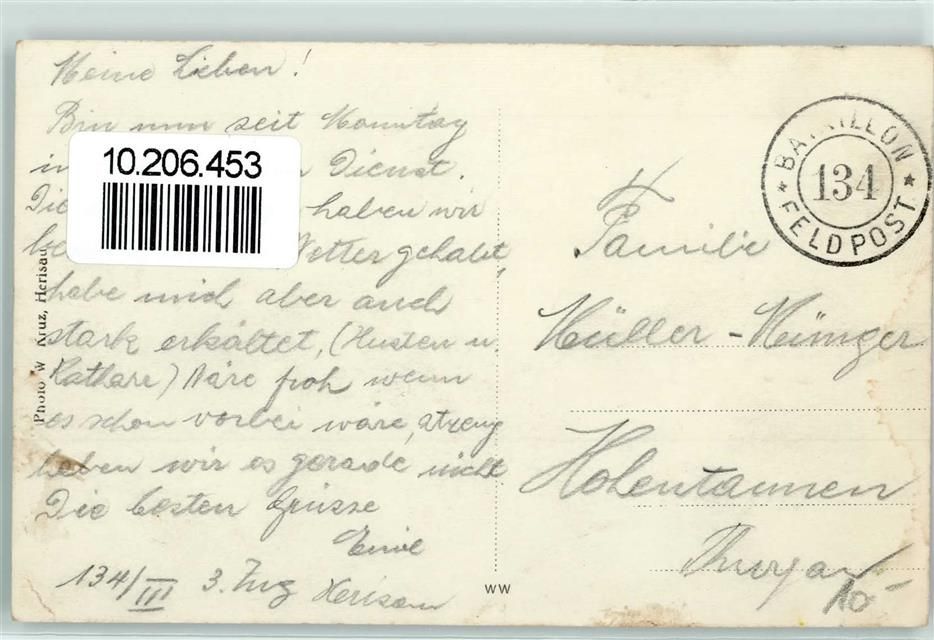 Meine Lieben!
Bin nun seit Monntag
in Dienst.
Die haben wir
Wetter gehabt,
habe mich aber auch
stark erkältet, (Husten u
Kathare) Wäre froh wenn
es schon vorbei wäre,
haben wir es gerade nicht
Die besten Grüsse
Emil
134/III 3. Zug Herisau
10.206.453
Photo W Kruz, Herisau
BATAILLON
134
* FELDPOST *
Familie
Müller-Münger
Hohentannen
Thurgau
10-
WW